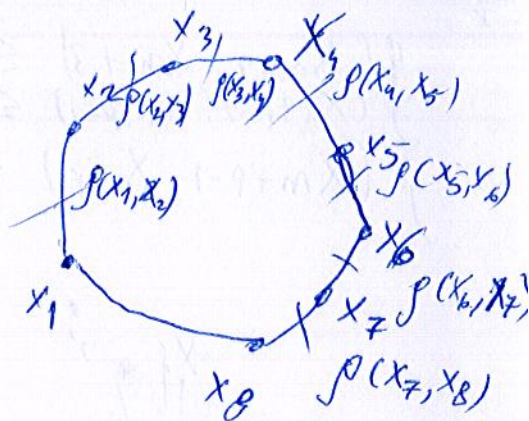 x₃ x₄
x₂ ρ(x₂,x₃) ρ(x₃,x₄) ρ(x₄,x₅)
ρ(x₁,x₂) x₅ ρ(x₅,x₆)
x₆
x₁ x₇ ρ(x₆,x₇)
x₈ ρ(x₇,x₈)